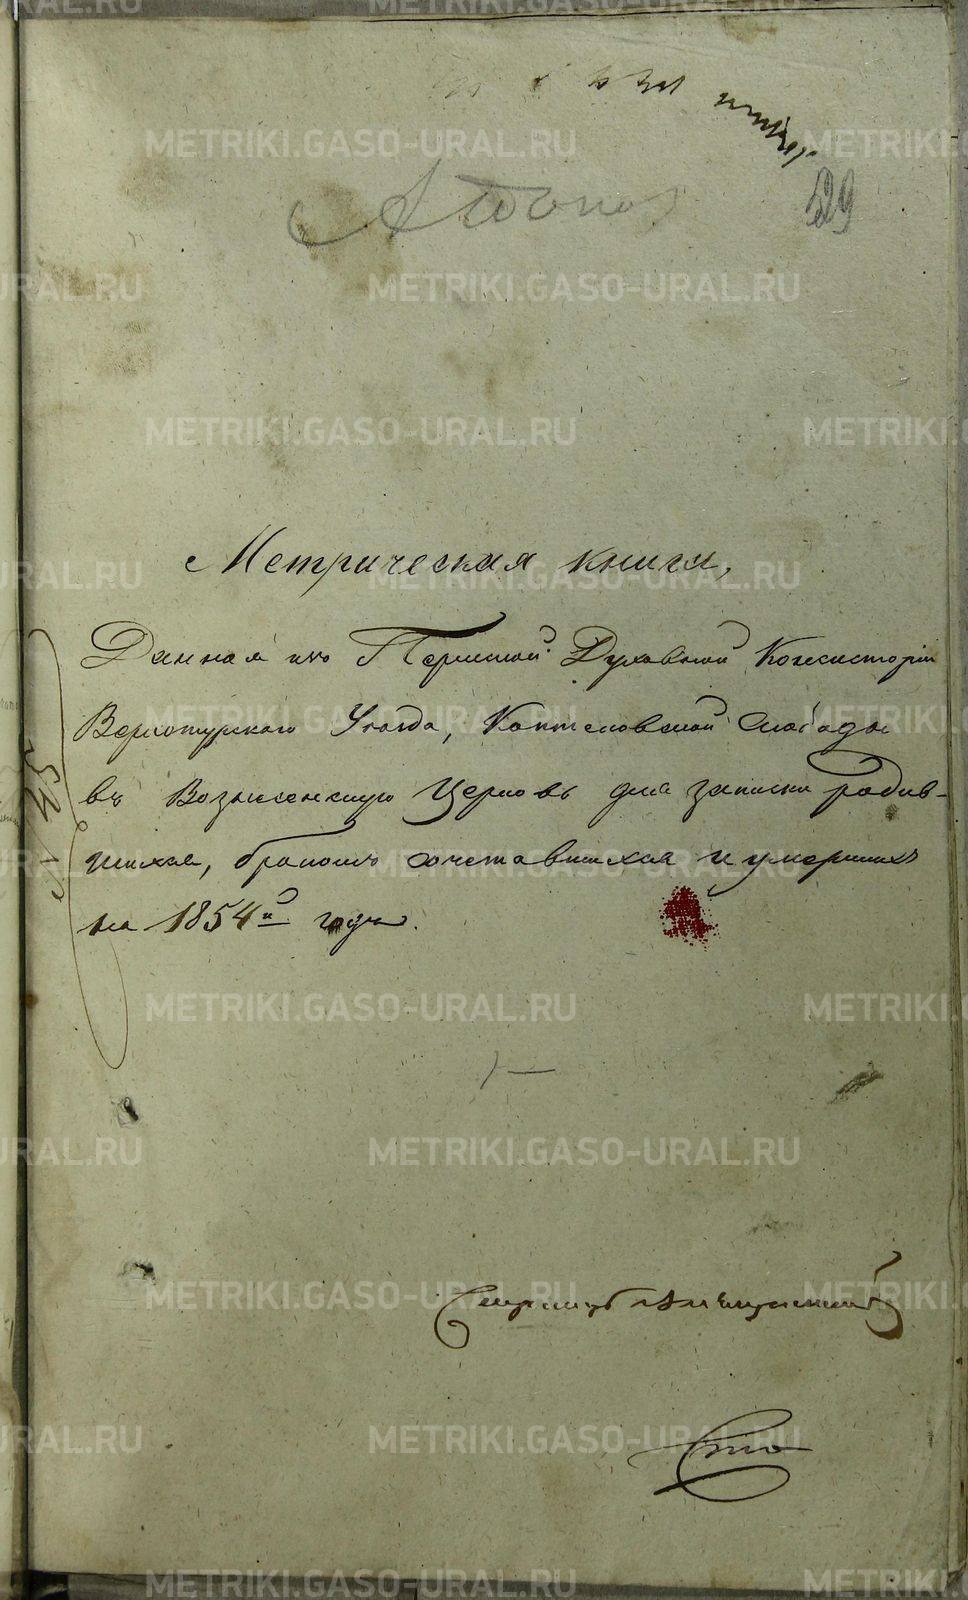 529
Метрическая книга,
Данная изъ Пермской Духовной Консисторіи
Верхотурскаго Уѣзда, Коптеловской Слободы
въ Вознесенскую Церковь для записки родив-
шихся, бракомъ сочетавшихся и умершихъ
на 1854й годъ.
Секретарь
METRIKI.GASO-URAL.RU